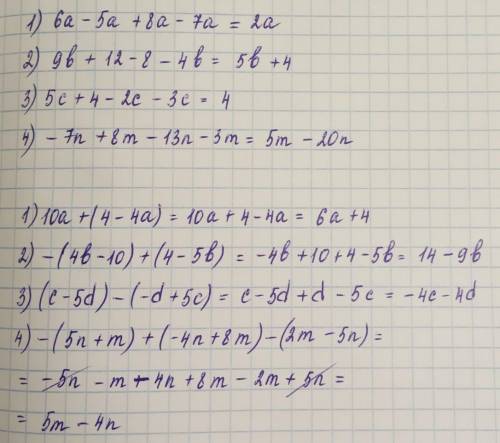 1) 6a - 5a + 8a - 7a = 2a
2) 9b + 12 - 8 - 4b = 5b + 4
3) 5c + 4 - 2c - 3c = 4
4) - 7n + 8m - 13n - 3m = 5m - 20n
1) 10a + (4 - 4a) = 10a + 4 - 4a = 6a + 4
2) -(4b - 10) + (4 - 5b) = -4b + 10 + 4 - 5b = 14 - 9b
3) (c - 5d) - (-d + 5c) = c - 5d + d - 5c = -4c - 4d
4) -(5n + m) + (-4n + 8m) - (2m - 5n) =
= -5n - m - 4n + 8m - 2m + 5n =
= 5m - 4n